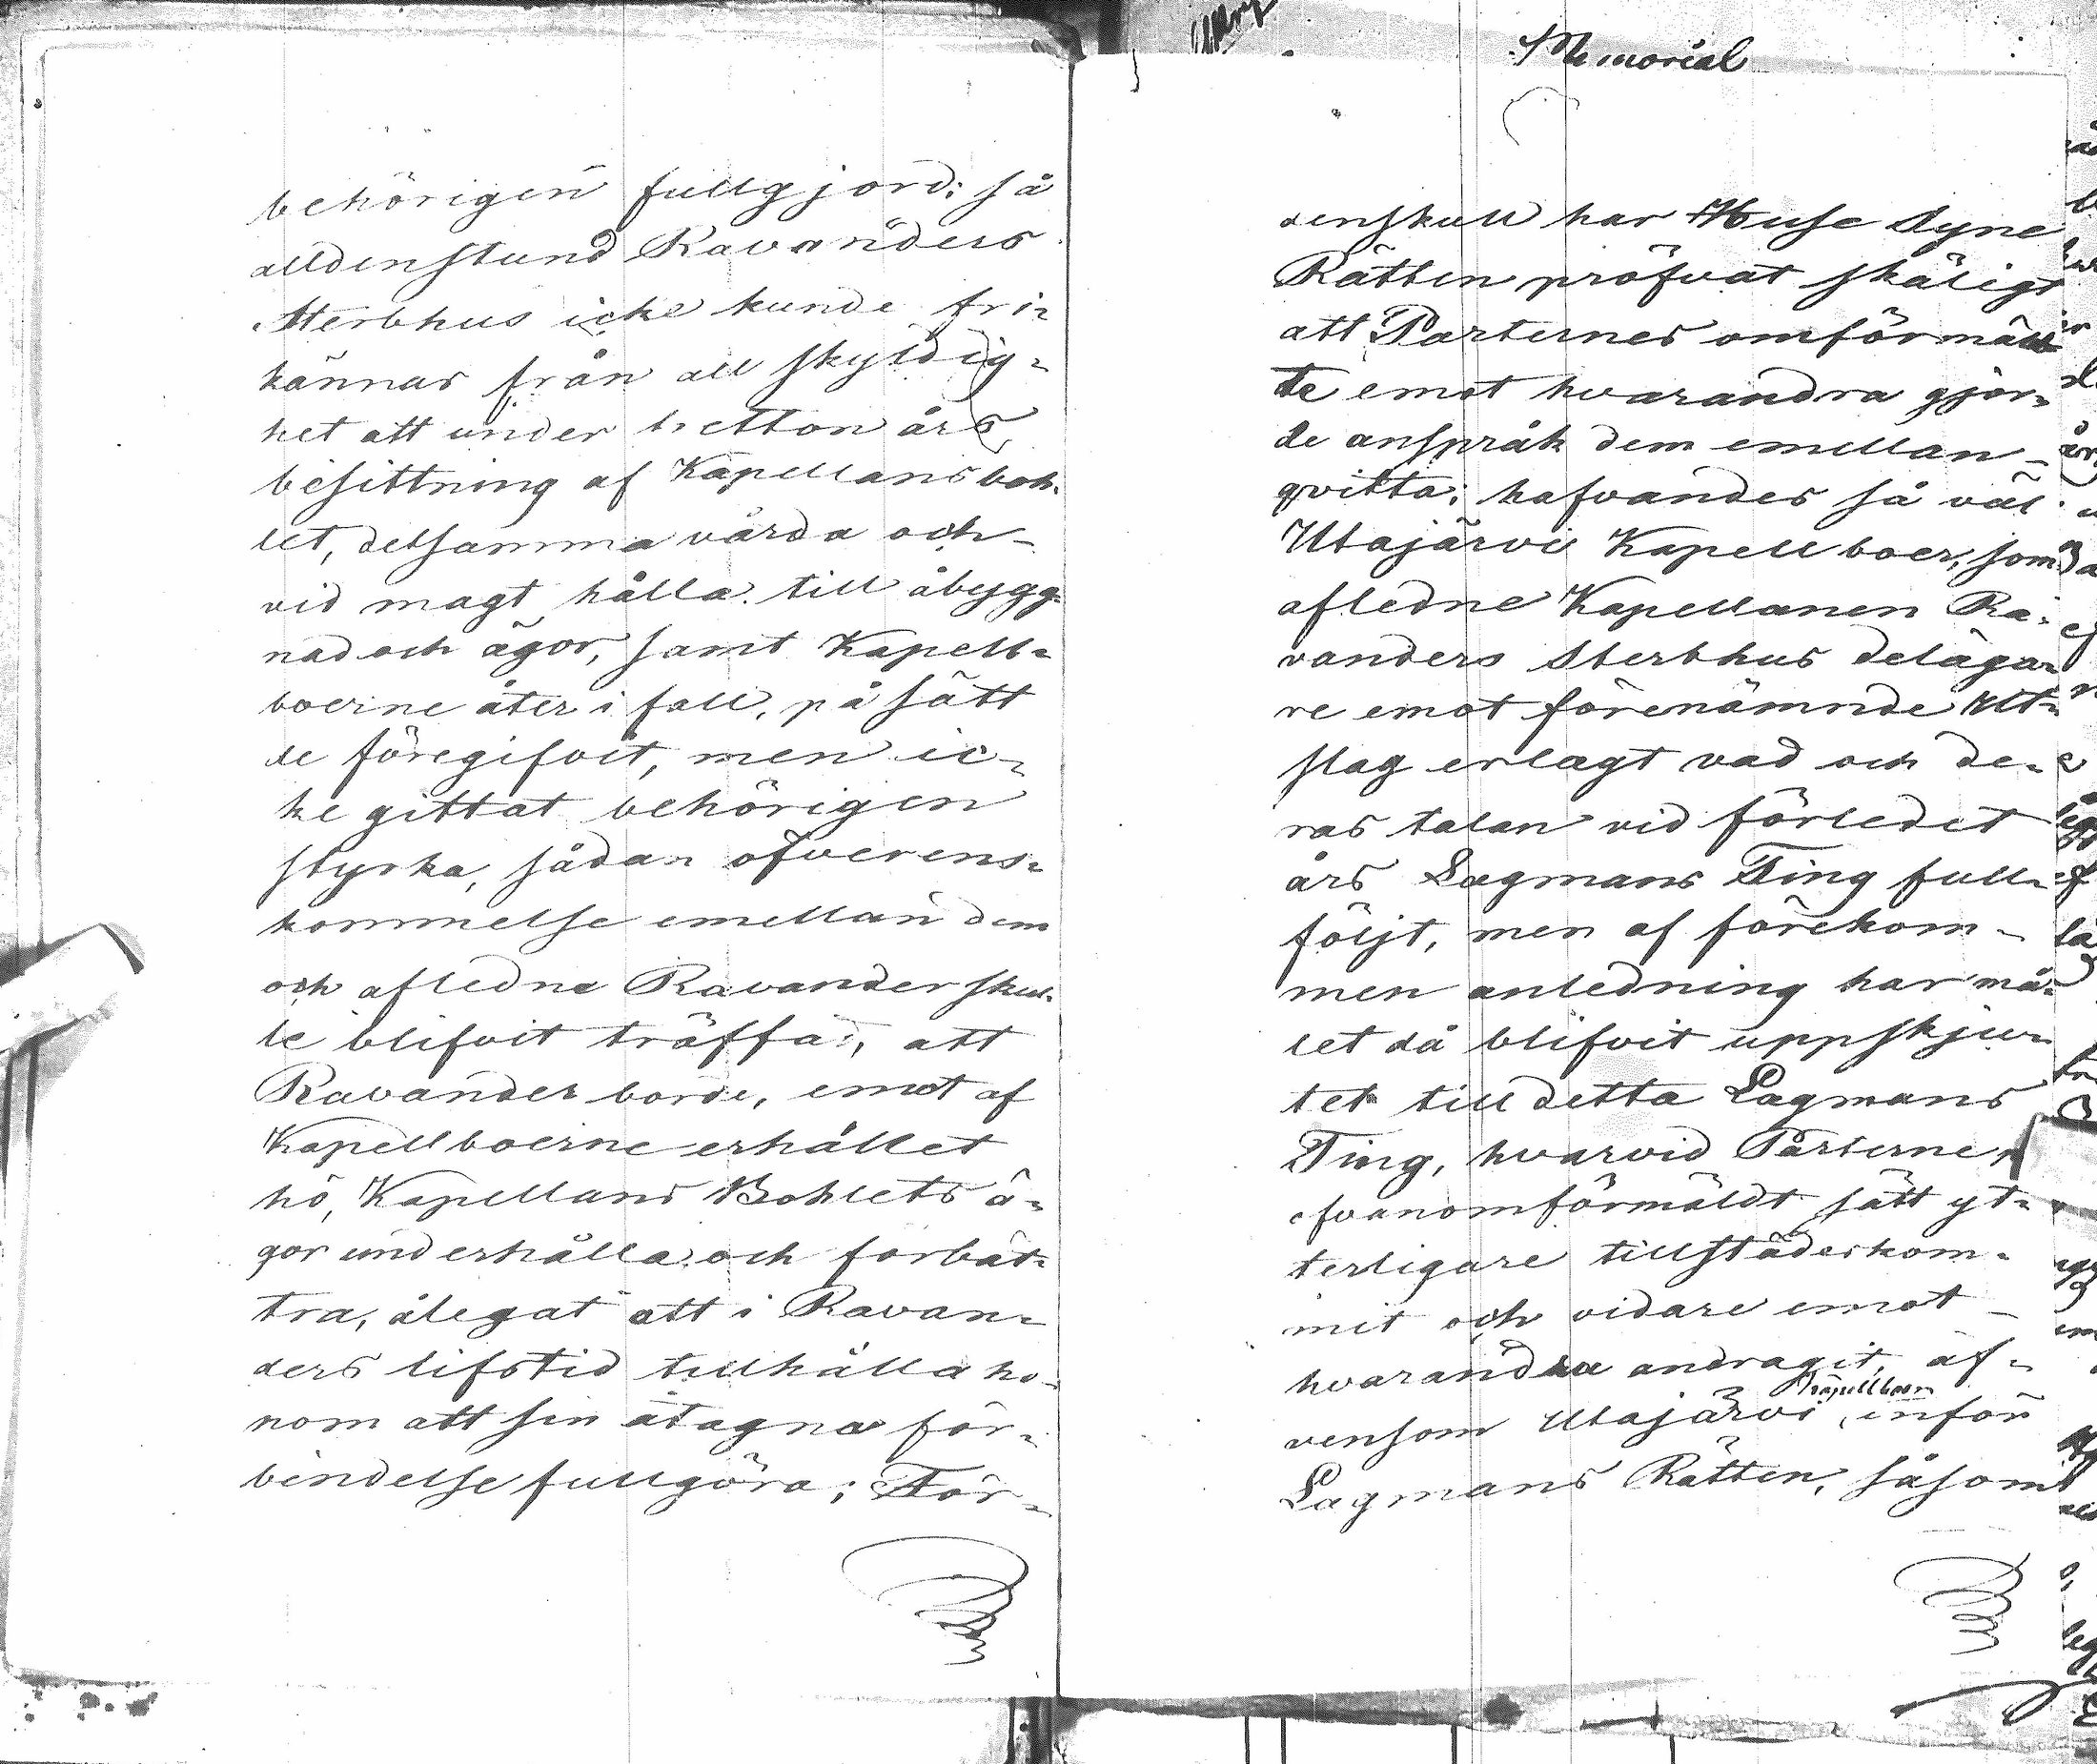 behörigen fullgjord: så
alldenstund Ravanders
Sterbhus icke kunde fri-
kännas från all skyldig-
het att under tretton års
besittning af Kapellans boh-
let, detsamma vårda och
vid magt hålla till åbygg-
nad och ägor, samt Kapell-
boerne åter i fall, på sätt
de föregifvit, men ic-
ke gittat behörigen
styrka, sådan öfverens-
kommelse emellan dem
och afledne Ravander skul-
le blifvit träffad, att
Ravander borde, emot af
Kapellboerne erhållet
hö, Kapellans Bohlets ä-
gor underhålla och förbät-
tra, ålegat att i Ravan-
ders lifstid tillhålla ho-
nom att sin åtagna för-
bindelse fullgöra; För-
Memorial
denskull har Huse Syne
Rätten pröfvat skäligt
att Parternes omförmäl-
te emot hvarandra gjor-
de anspråk dem emellan
qvitta; hafvandes så väl
Utajärvi Kapellboer, som
afledne Kapellanen Ra-
vanders Sterbhus delega-
re emot förenämnde Ut-
slag erlagt vad och de-
ras talan vid förledet
års Lagmans Ting full-
följt, men af förekom-
men anledning har må-
let då blifvit uppskju-
tet till detta Lagmans
Ting, hvarvid Parterne
ofvanomförmäldt sätt yt-
terligare tillstädeskom-
mit och vidare emot
hvarandra andragit, äf-
Kapellboer
vensom Utajärvi, inför
Lagmans Rätten, såsom